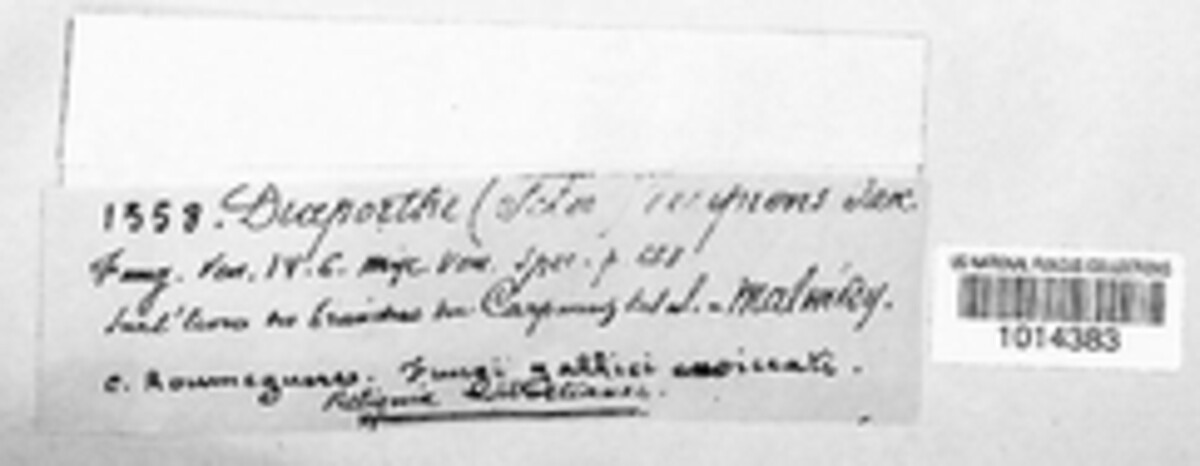 1558. Diaporthe ( Sacc.
Fung. Ven. IV. 6. mye Ven. Spec. p.
sur l'écorce des branches du Carpinus Bet. L. - Malmédy.
C. Roumeguère. Fungi gallici exsiccati.
Reliquiæ Libertianæ.
US NATIONAL FUNGUS COLLECTIONS
1014383